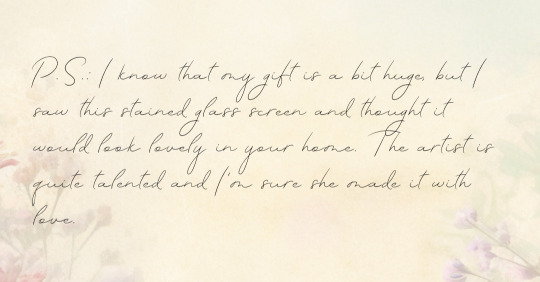 P.S.: I know that my gift is a bit huge, but I
saw this stained glass screen and thought it
would look lovely in your home. The artist is
quite talented and I'm sure she made it with
love.